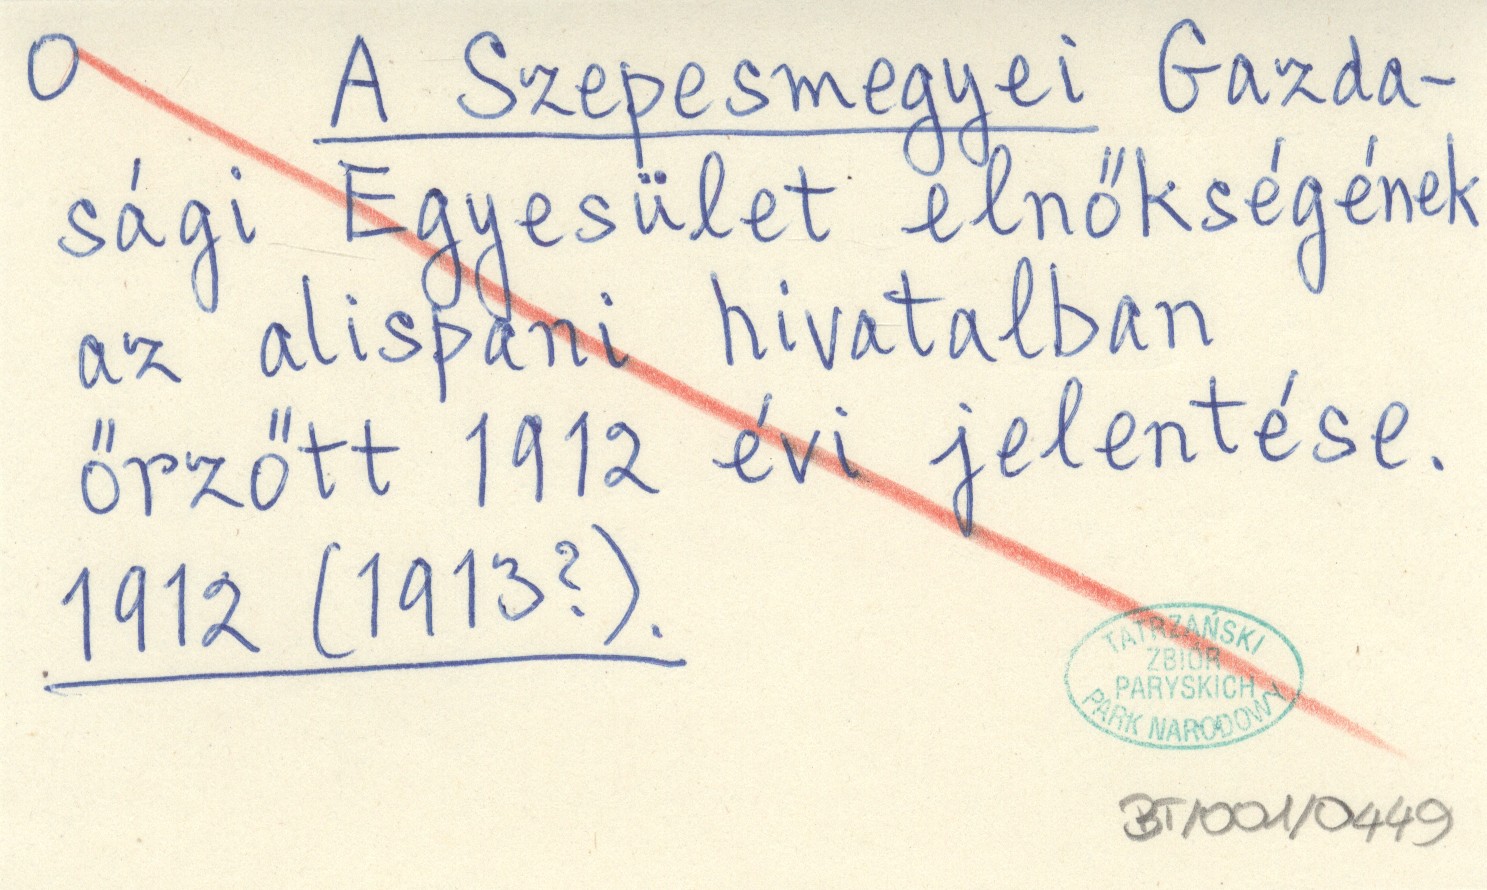 O A Szepesmegyei Gazda-
sági Egyesület elnökségének
az alispáni hivatalban
őrzött 1912 évi jelentése.
1912 (1913?).
TATRZAŃSKI
ZBIÓR
PARYSKICH
PARK NARODOWY
BT/001/0449